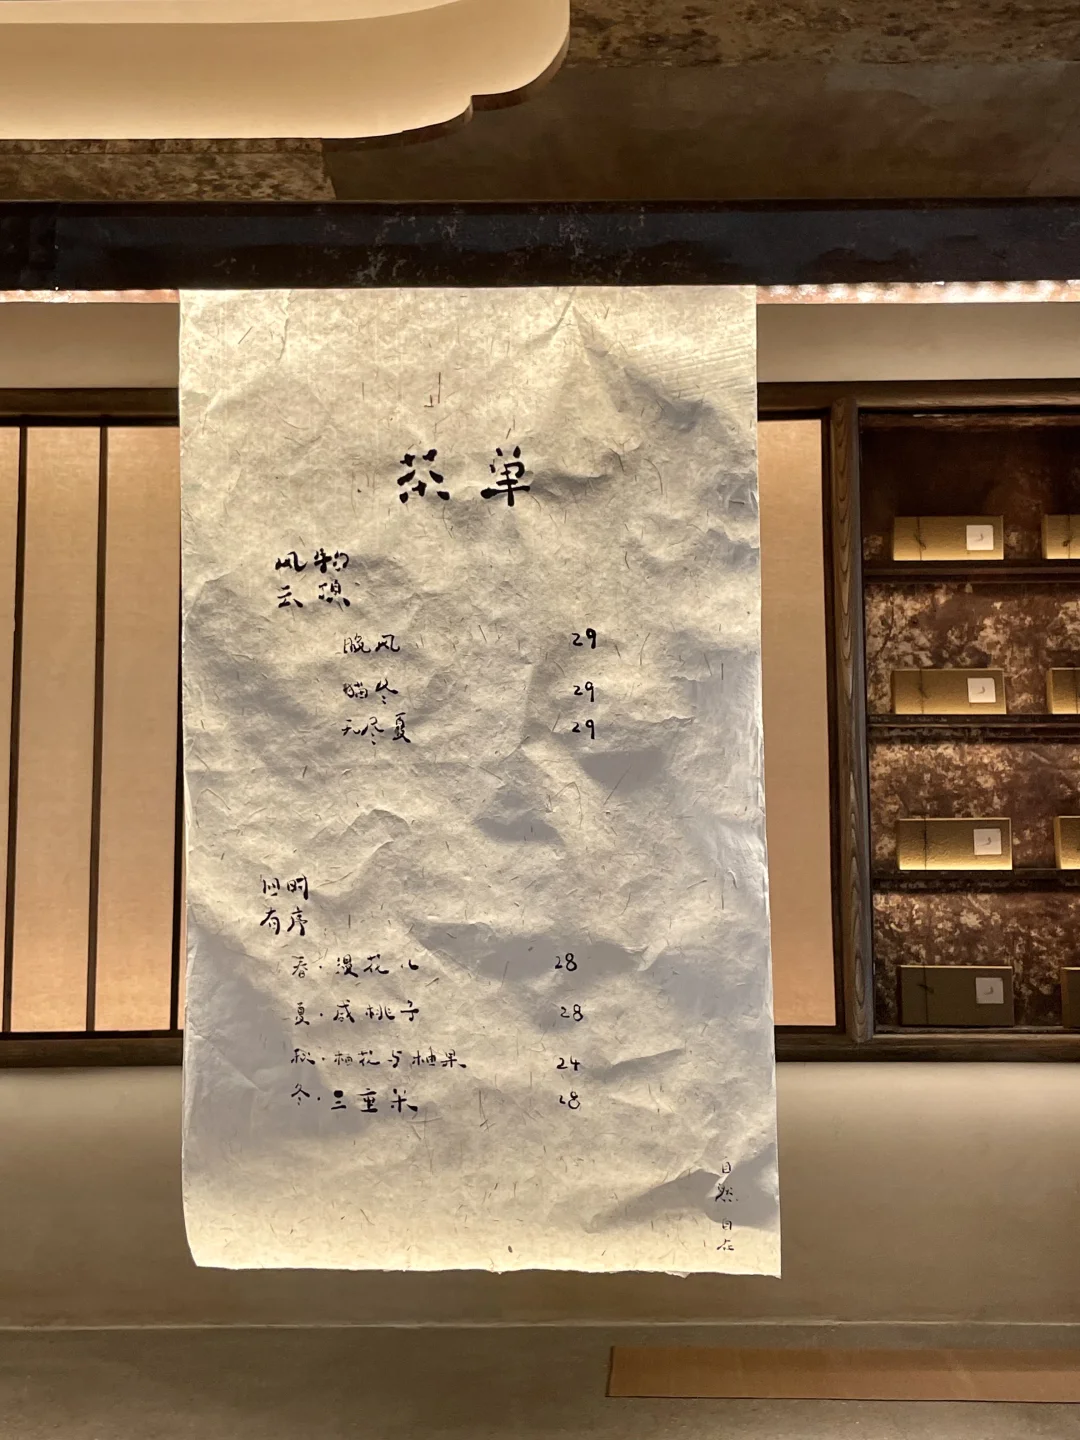 茶单
风物
云顶
晚风 29
猫冬 29
无冬夏 29
四时
有序
春·漫花儿 28
夏·咸桃子 28
秋·柚花与柚果 24
冬·三重米 28
自然自在